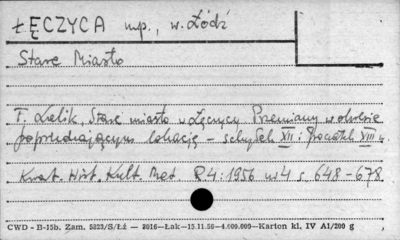 ŁĘCZYCA mp., w. Łódź
Stare Miasto
T. Lalik, Stare miasto w Łęczycy Przemiany w okresie
poprzedzającym lokację - schyłek XII i początek XIII w.
Kwart. Hist. Kult. Mat. R 4: 1956 nr 4 s. 648-678
CWD - B-15b. Zam. 5323/S/Łż - 3016-Łak-15.11.56-4.000.000-Karton kl. IV A1/200 g